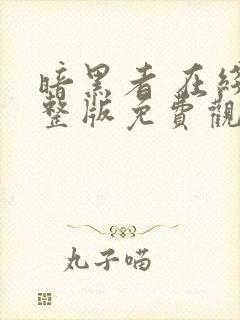 暗黑者 在綫
整版免費觀
丸子喵